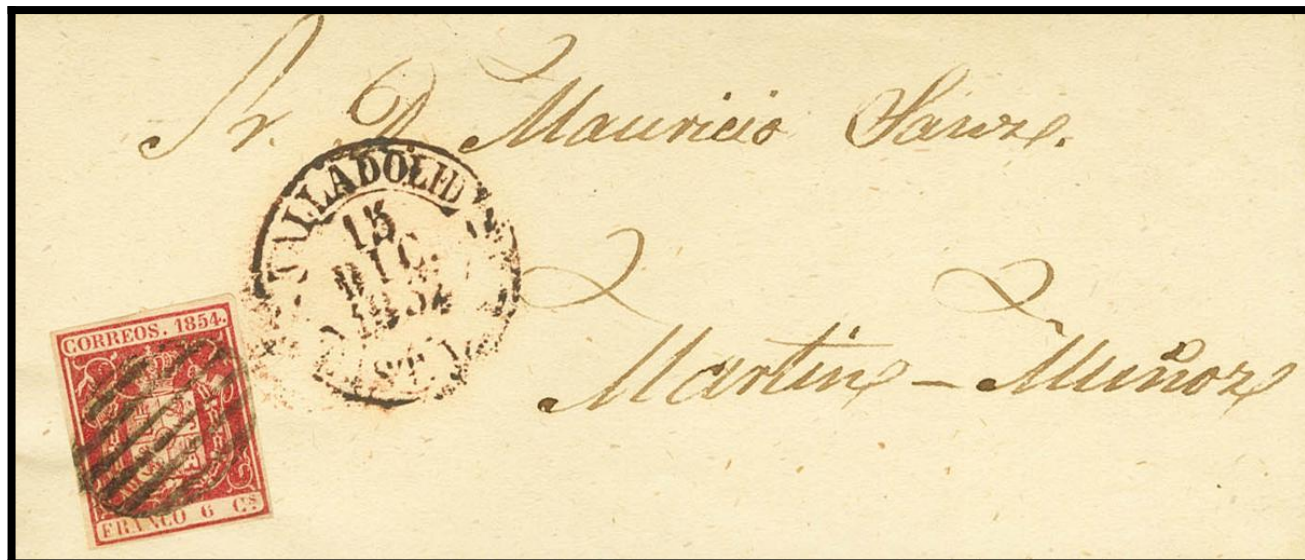 Sr. D. Mauricio Sanz.
VALLADOLID
DIC.
Martin - Muñoz
CORREOS. 1854.
FRANCO 6 Cs